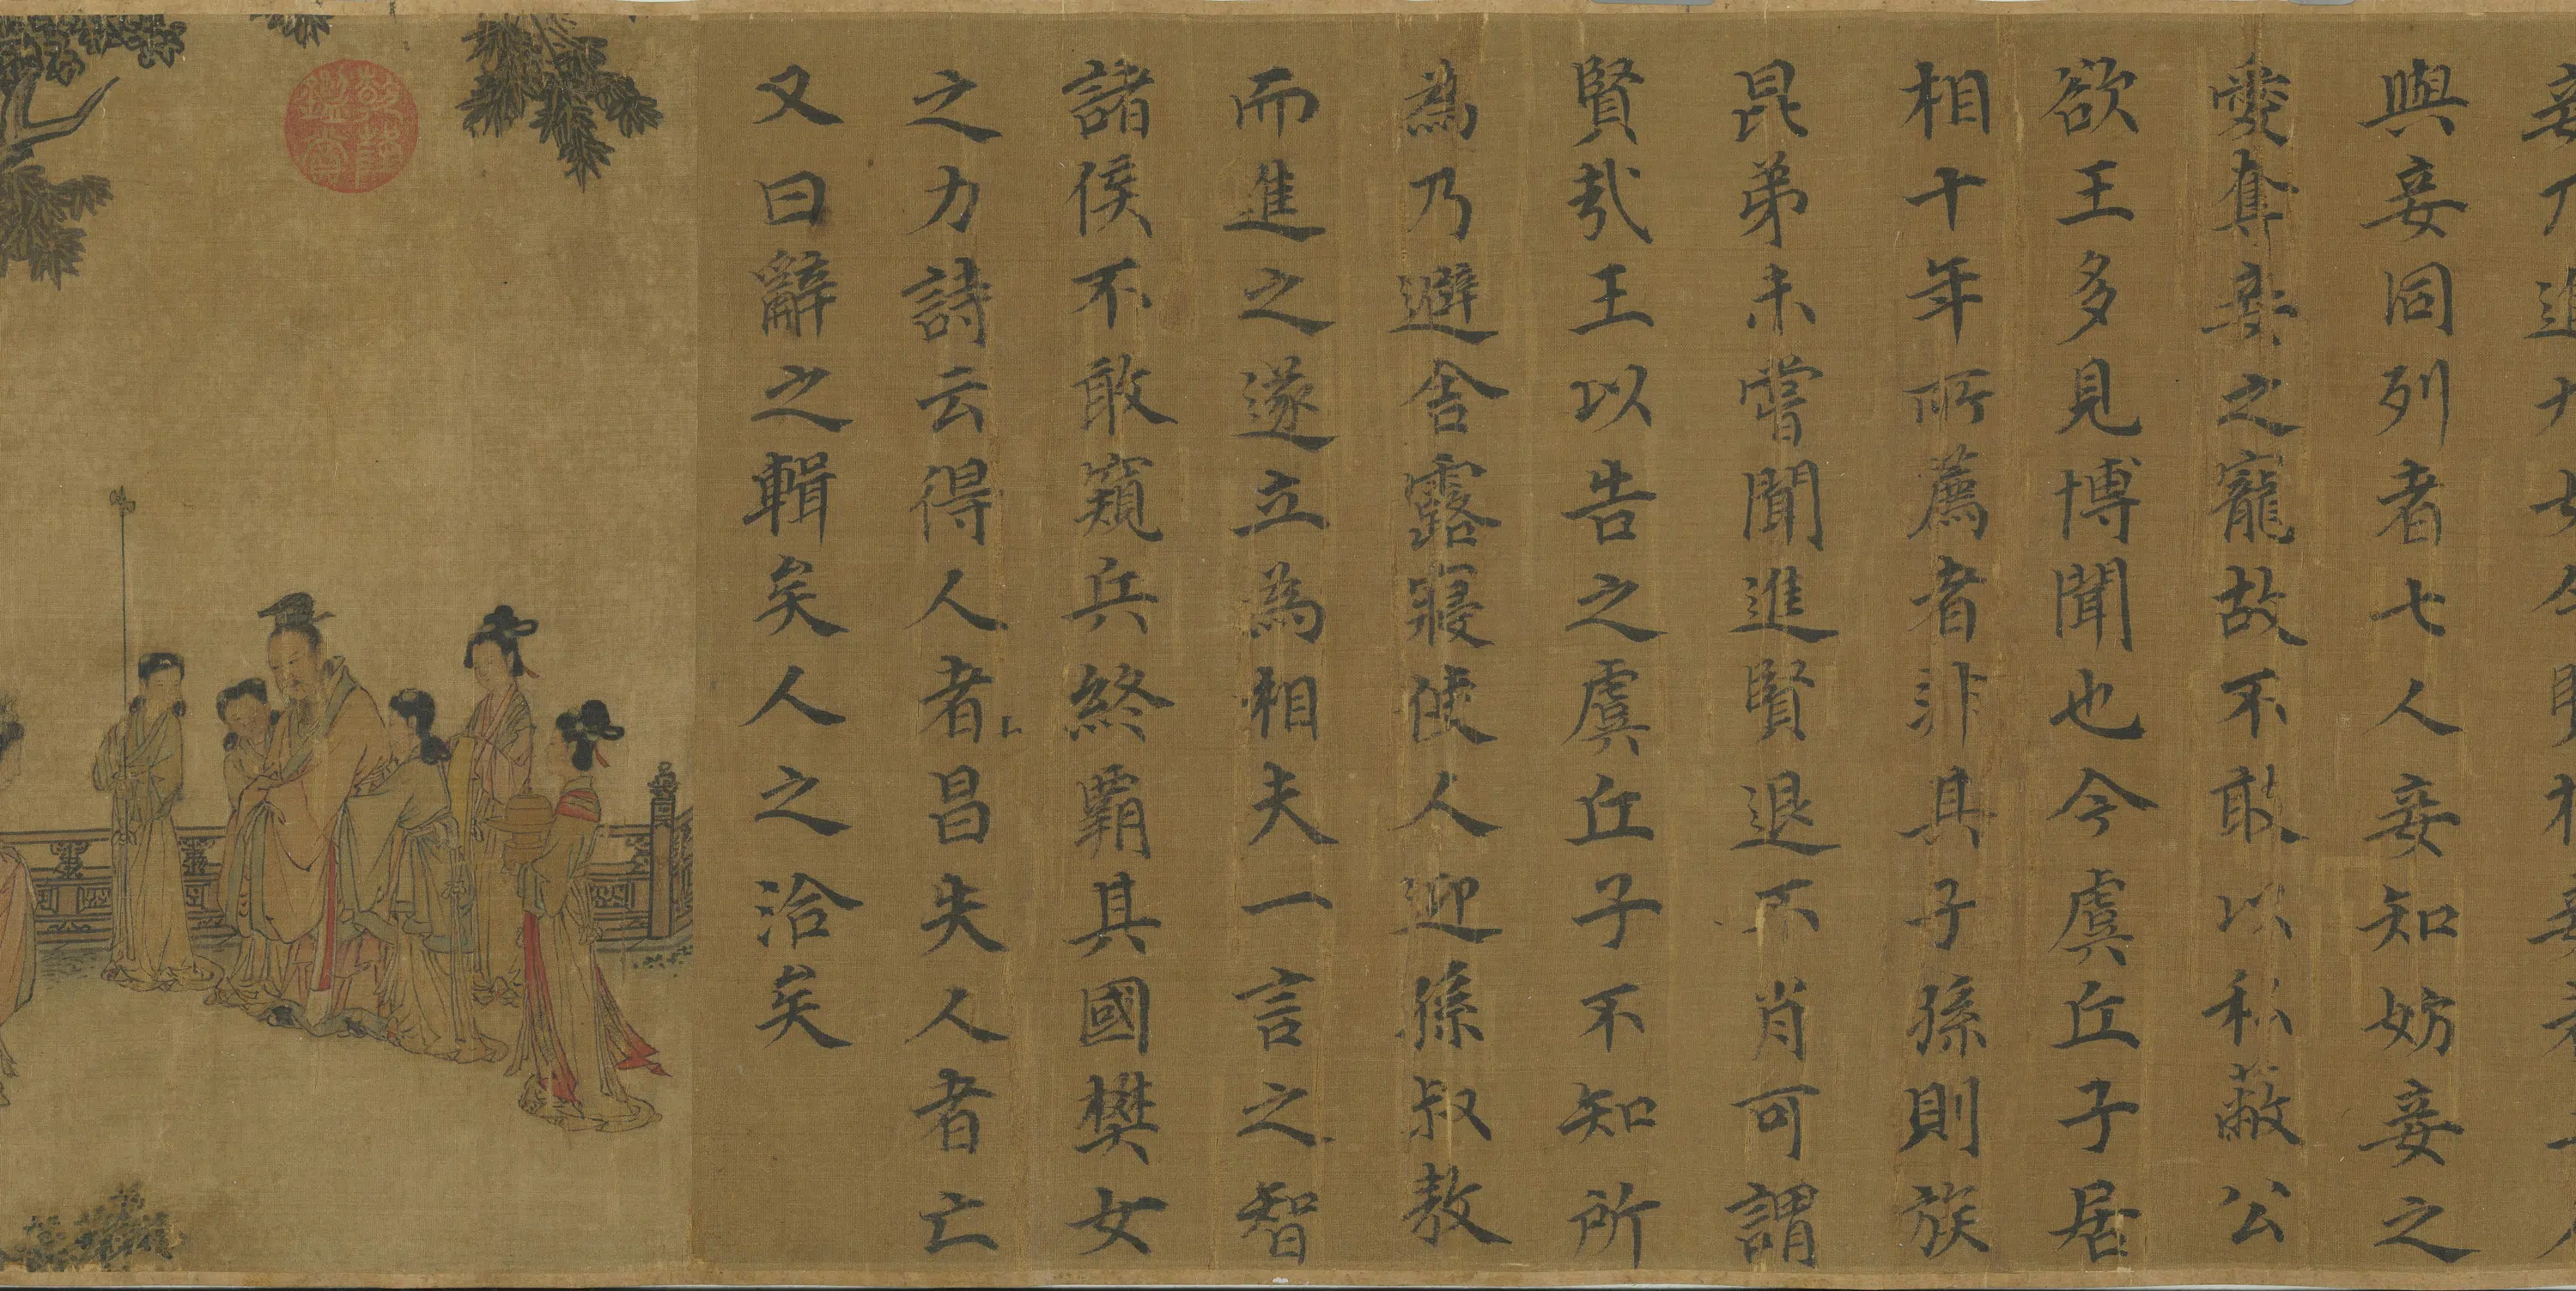 妾乃進九女今
與妾同列者七人妾知妨妾之
愛奪妾之寵故不敢以私蔽公
欲王多見博聞也今虞丘子居
相十年所薦者非其子孫則族
昆弟未嘗聞進賢退不肖可謂
賢哉王以告之虞丘子不知所
為乃避舍露寢使人迎孫叔敖
而進之遂立為相夫一言之智
諸侯不敢窺兵終霸其國樊女
之力詩云得人者昌失人者亡
又曰辭之輯矣人之洽矣